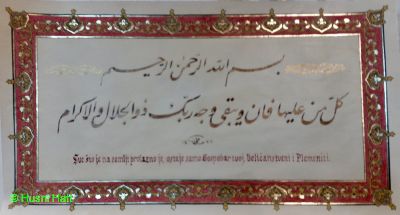 بسم الله الرحمن الرحيم
كل من عليها فان ويبقى وجه ربك ذو الجلال والاكرام
Sve što je na zemlji prolazno je, ostaje samo Gospodar tvoj, Veličanstveni i Plemeniti.